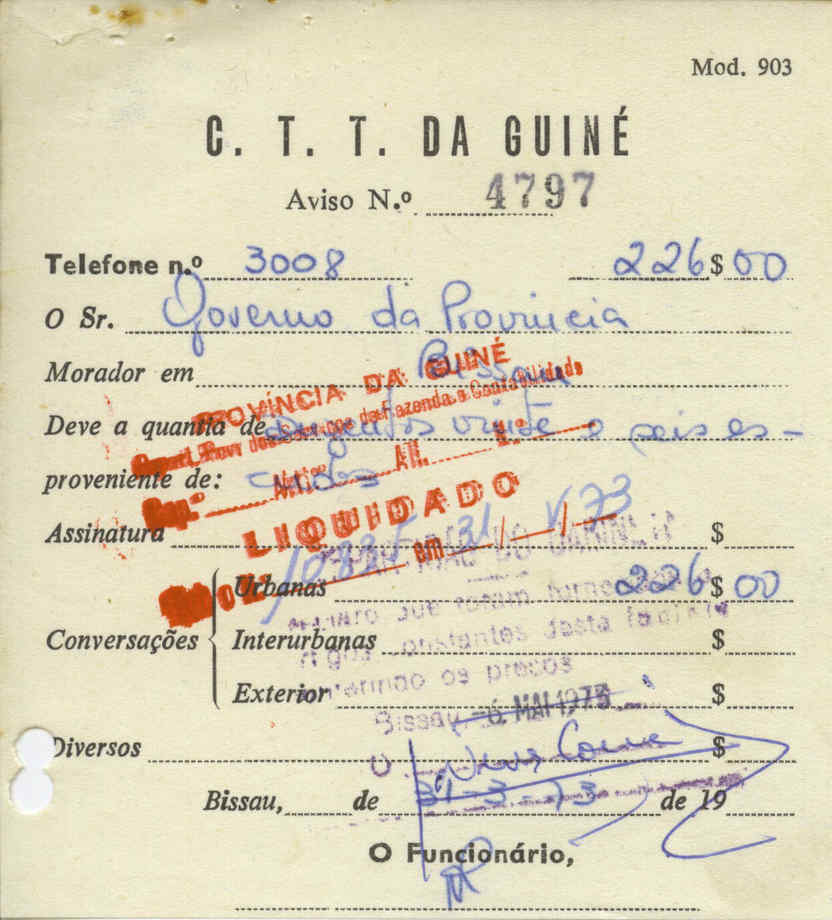 Mod. 903
C. T. T. DA GUINÉ
Aviso N.º 4797
Telefone n.º 3008 226$00
O Sr. Governo da Provincia
Morador em Bissau
PROVÍNCIA DA GUINÉ
dos Serviços da Fazenda e Contabilidade
Deve a quantia de duzentos vinte e seis es-
proveniente de: cudos
LIQUIDADO
Assinatura $
em 31/V/73
Urbanas 226$00
que foram
Conversações Interurbanas $
constantes desta
os preços
Exterior $
Bissau, 6 MAI 1973
Diversos $
O
Bissau, de 31-3-73 de 19
O Funcionário,